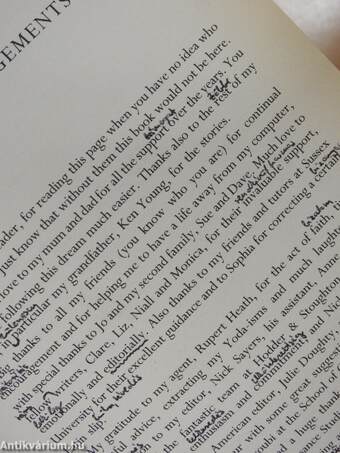 GEMENTS
ader, for reading this page when you have no idea who
just know that without them this book would not be here.
love to my mum and dad for all the support over the years. You
following this dream much easier. Thanks also to the rest of my
in particular my grandfather, Ken Young, for the stories.
thanks to all my friends (you know who you are) for continual
encouragement and for helping me to have a life away from my computer,
with special thanks to Jo and my second family, Sue and Dave. Much love to
writers, Clare, Liz, Niall and Monica, for their invaluable support,
emotionally and editorially. Also thanks to my friends and tutors at Sussex
University for their excellent guidance and to Sophia for correcting a certain
slip.
gratitude to my agent, Rupert Heath, for the act of faith,
advice, extracting my Yoda-isms and much laugh
editor, Nick Sayers, his assistant, Anne
fantastic team at Hodder & Stoughton
enthusiasm and commitment and Nick
American editor, Julie Doughty
with sincere
at the School of
a huge thank
ance Studies
Antikvárium.hu